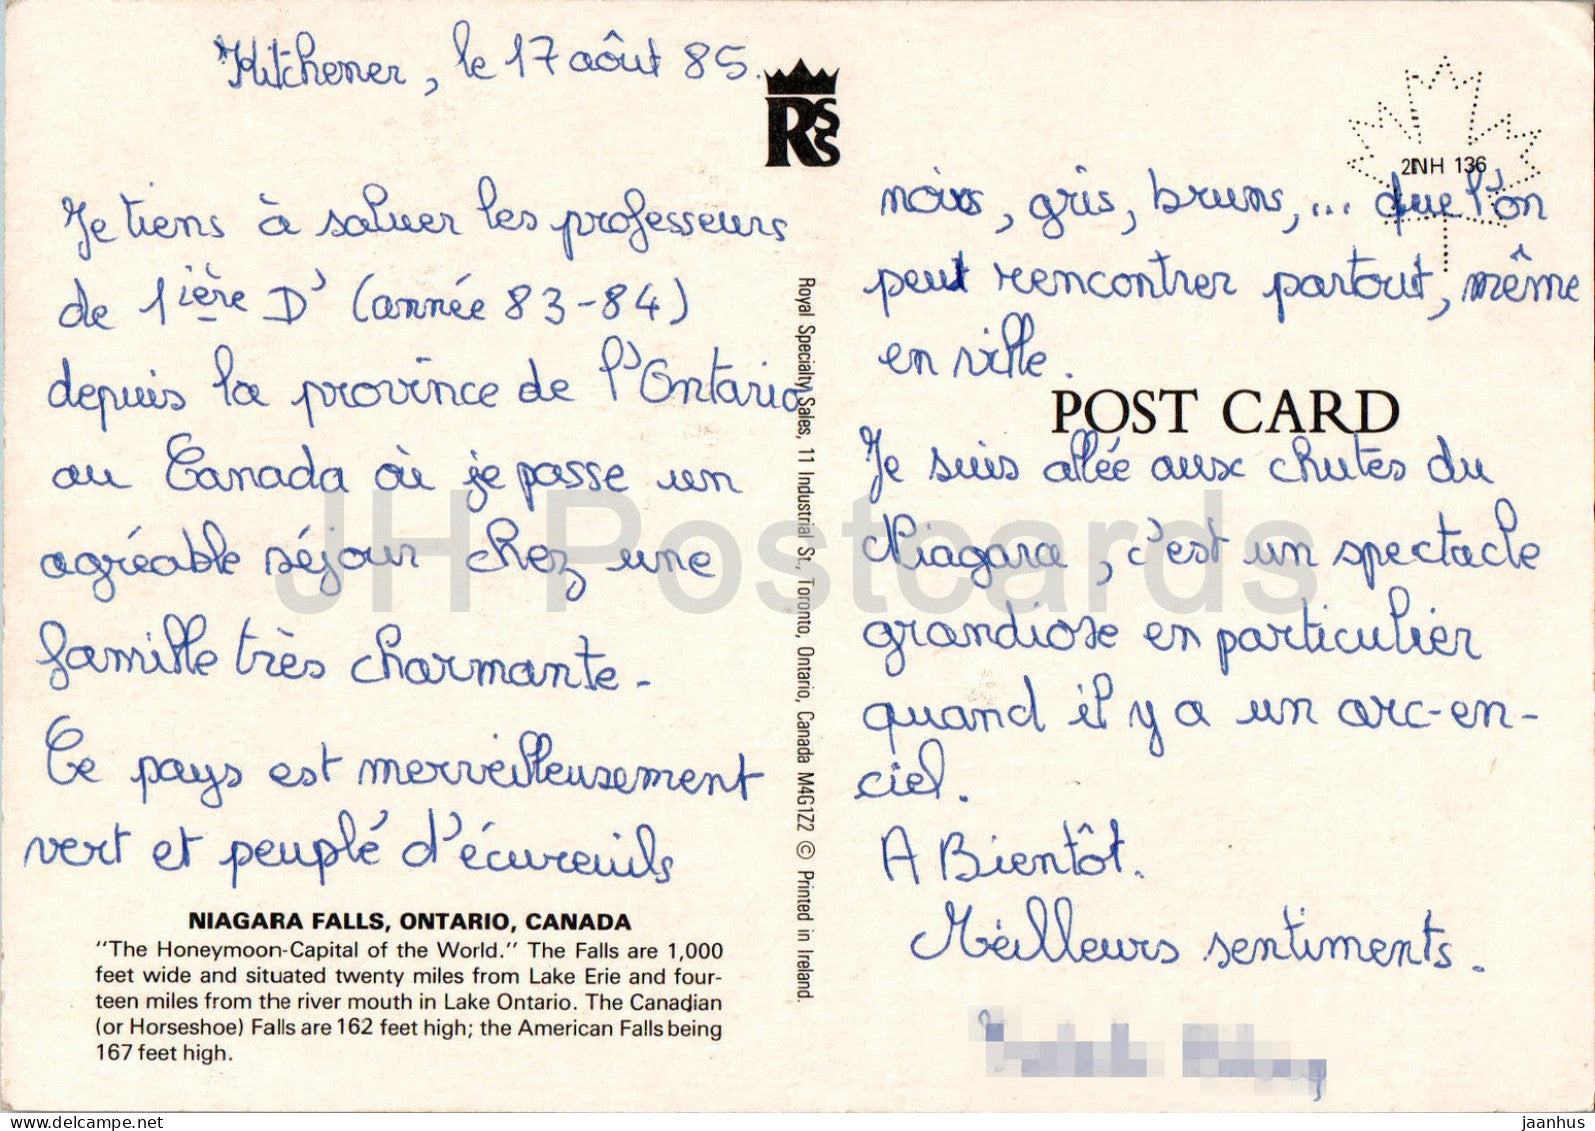 Kitchener, le 17 août 85.
Je tiens à saluer les professeurs
de 1ière D' (année 83-84)
depuis la province de l'Ontario
au Canada où je passe un
agréable séjour chez une
famille très charmante.
Ce pays est merveilleusement
vert et peuplé d'écureuils
NIAGARA FALLS, ONTARIO, CANADA
"The Honeymoon-Capital of the World." The Falls are 1,000
feet wide and situated twenty miles from Lake Erie and four-
teen miles from the river mouth in Lake Ontario. The Canadian
(or Horseshoe) Falls are 162 feet high; the American Falls being
167 feet high.
RSS
Royal Specialty Sales, 11 Industrial St., Toronto, Ontario, Canada M4G1Z2 © Printed in Ireland.
2NH 136
noirs, gris, bruns, ... que l'on
peut rencontrer partout, même
en ville.
POST CARD
Je suis allée aux chutes du
Niagara, c'est un spectacle
grandiose en particulier
quand il y a un arc-en-
ciel.
A Bientôt.
Meilleurs sentiments.
JH Postcards
www.delcampe.net
jaanhus